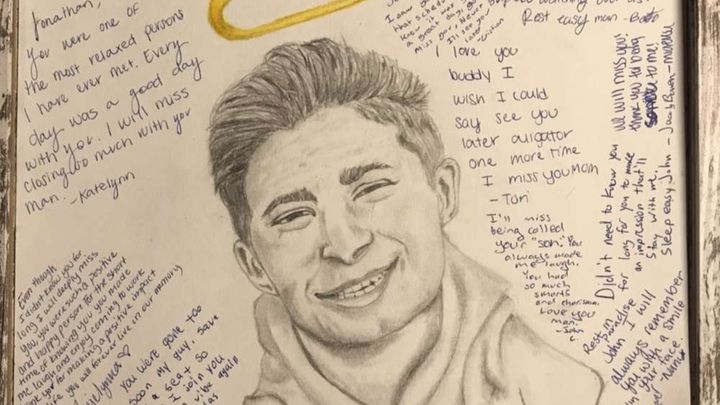 Jonathan,
you were one of
the most relaxed persons
I have ever met. Every
day was a good day
with you. I will miss
closing so much with you
man. -Katelynn
Rest easy man -
I love you
buddy I
wish I could
say see you
later aligator
one more time
I miss you Mom
- Tom
I'll miss
being called
your "son." You
always made
me laugh.
You had
so much
smarts
and charisma.
Love you
man.
- John
C
we will miss you!
thank you for being
to me!
Didn't need to know you
for long for you to make
an impression that'll
stay with me.
Sleep easy John -
Rest in
Paradise
John I will
always remember
you with a smile
on your face
Even though
I didn't know you for
long I will deeply miss
you, you were such a positive
and happy person for the short
time of knowing you you made
me laugh and enjoy coming to work
thank you for making a positive impact
you will forever live in our memory
You were gone too
soon my guy, save
a seat so
I join you
vibe again